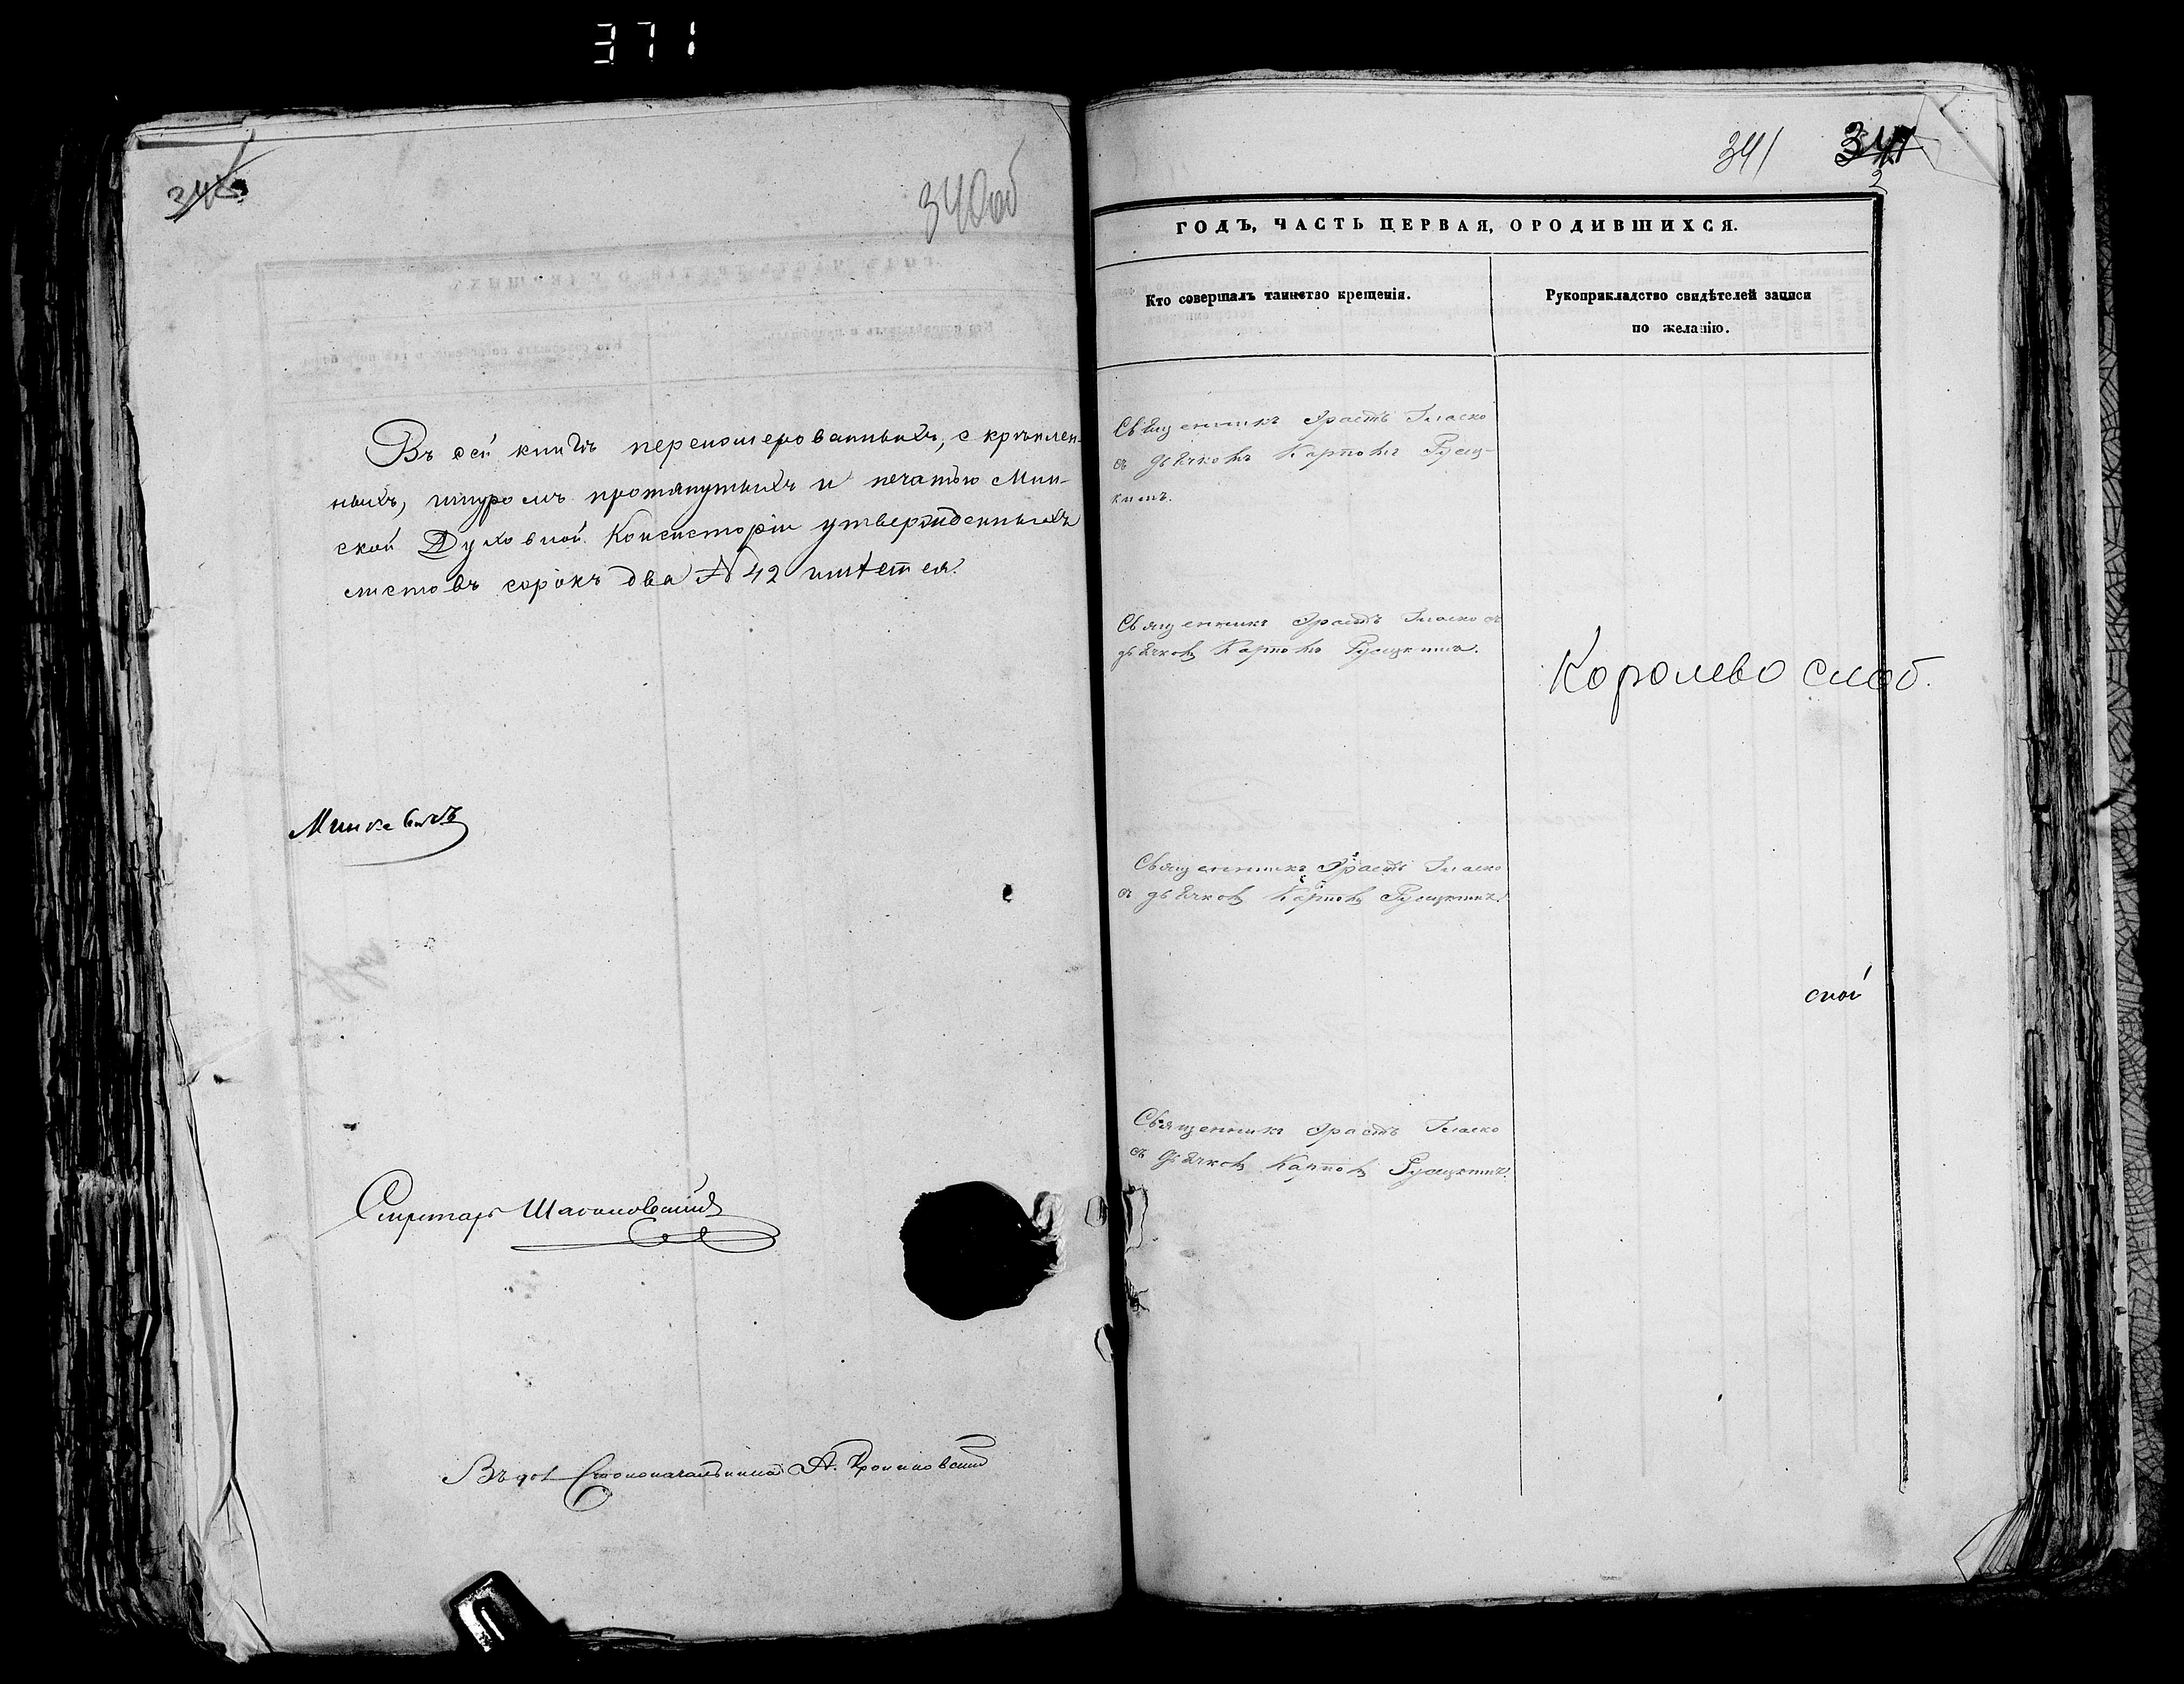 371
340об
Въ сей книгѣ переномерованныхъ, скрѣплен-
ныхъ, шнуромъ протянутыхъ и печатью Мин-
ской Духовной Консисторіи утвержденныхъ
листовъ сорокъ два № 42 имѣется.
Минкевичъ
Секретарь
Столоначальника А.
341
ГОДЪ, ЧАСТЬ ПЕРВАЯ, О РОДИВШИХСЯ.
Кто совершалъ таинство крещенія.
Рукоприкладство свидѣтелей записи
по желанію.
Священникъ Эрастъ Гласко
съ дьячкомъ Карпомъ Русец-
кимъ.
Священникъ Эрастъ Гласко съ
дьячком Карпомъ Русецкимъ.
Королево слоб.
Священникъ Эрастъ Гласко
съ дьячком Карпом Русецкимъ
ской
Священникъ Эрастъ Гласко
съ дьячком Карпом Русецкимъ.